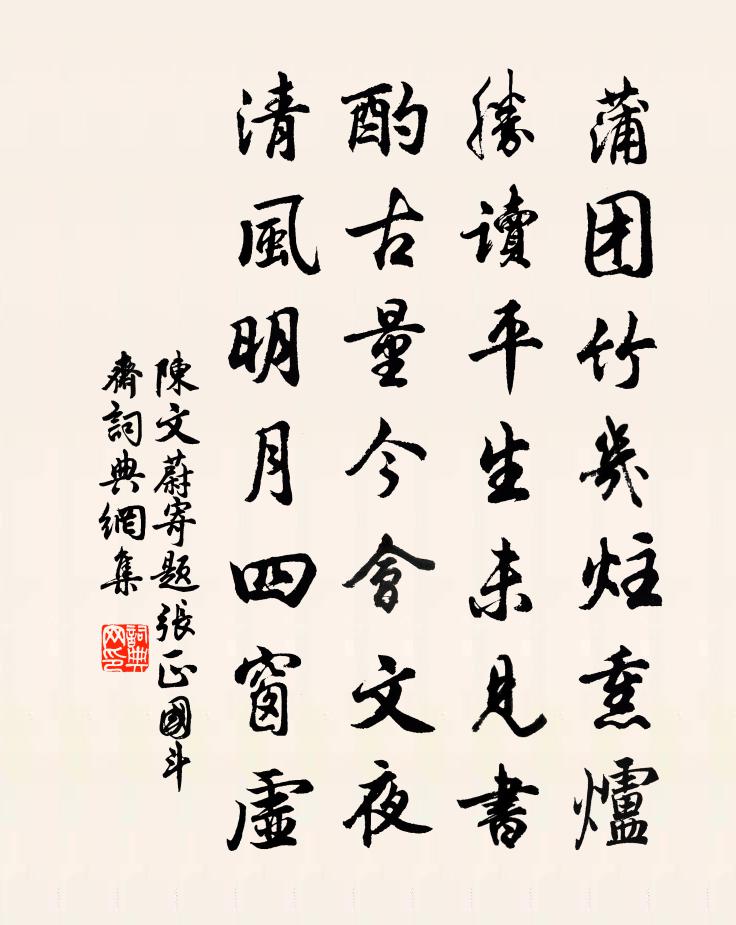 蒲团竹几炷熏爐
勝讀平生未見書
酌古量今會文夜
清風明月四窗虛
陳文蔚寄題張正國斗
齋詞典網集
詞典
网印